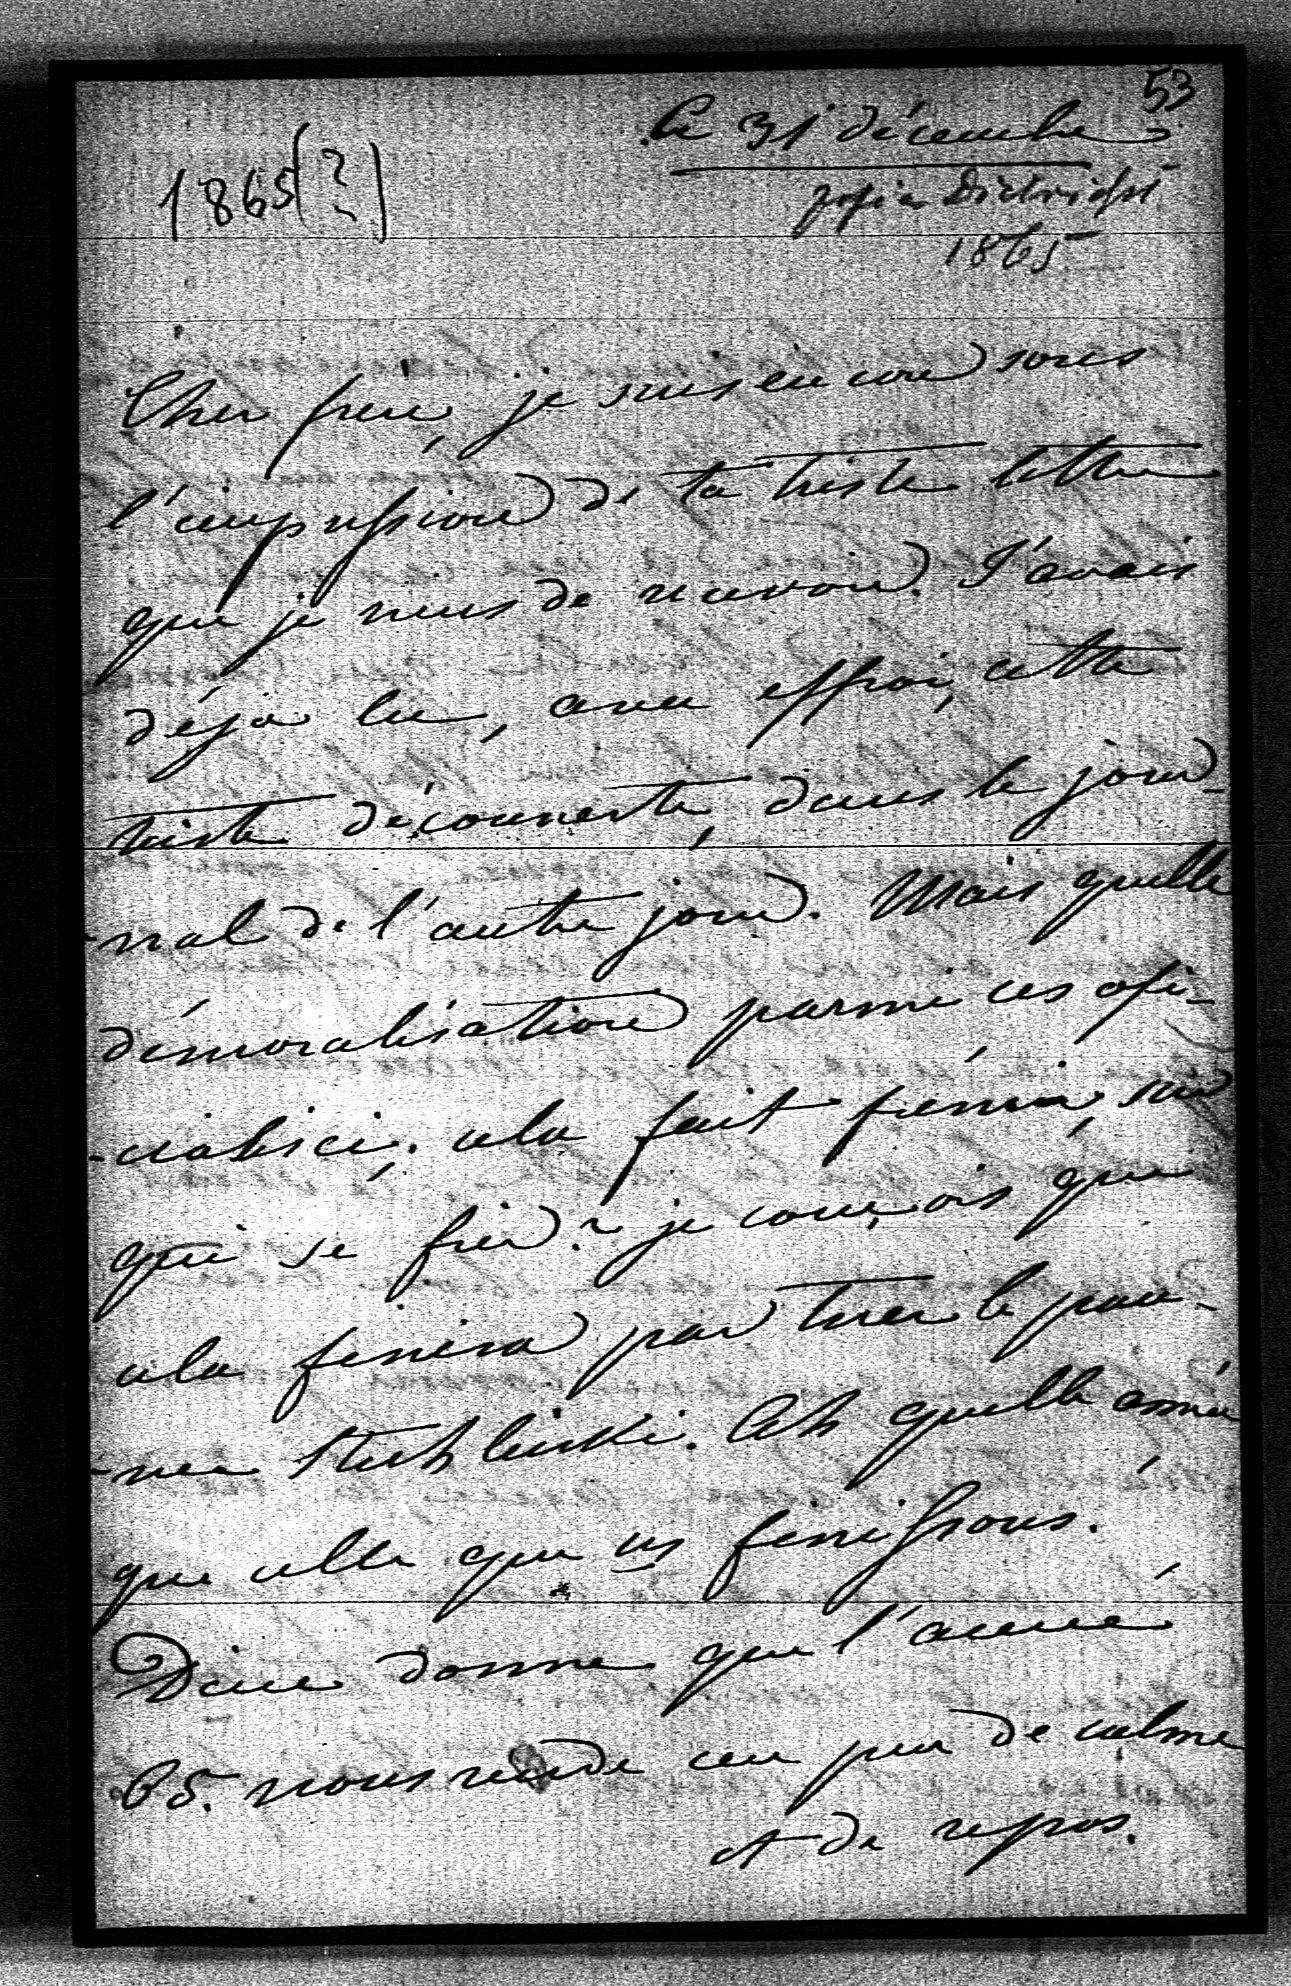 53
Le 31 décembre
1865(?)
Zofia Dietrichst
1865
Cher frère, je suis encore sous
l'impression de ta triste lettre
que je viens de recevoir. J'avais
déjà lu, avec effroi, cette
triste découverte, dans le jour-
-nal de l'autre jour. Mais quelle
démoralisation parmi ces ofi-
-cialisci, cela fait frémir, sur
qui se fier? je conçois que
cela finira par tuer le pau-
-vre. Ah quelle année
que celle que ns finissons.
Dieu donne que l'année
65. nous rende un peu de calme
et de repos.